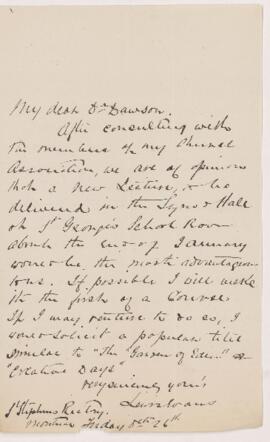 My dear Dr Dawson.
After consulting with
the members of my Church
Association, we are of opinion
that a New Lecture, to be
delivered in the Synod Hall
or St George's School Room
about the end of January
would be the most advantageous
If possible I will make
it the first of a Course
If I may venture to do so, I
would solicit a popular title
similar to "The Garden of Eden" or
"Creative Days"
very sincerely yours
Lewis Evans
St Stephens Rectory.
Montreal Friday 26th